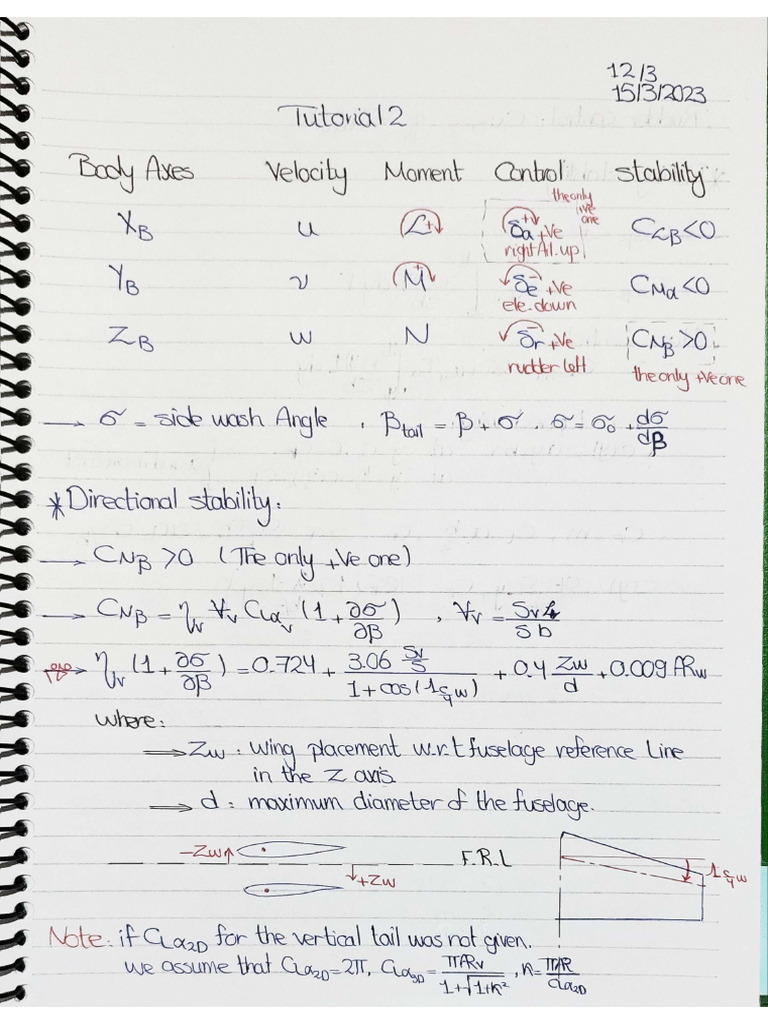 12/3
15/3/2023
Tutorial 2
Body Axes Velocity Moment Control stability
the only +ve one
X_B u L + δa + +ve C_Lβ<0
right Ail. up
Y_B v M + δe - +ve C_Mα<0
ele. down
Z_B w N δr - +ve C_Nβ>0
rudder left the only +ve one
→ σ = side wash Angle , β_tail = β + σ , σ = σ₀ + dσ/dβ
* Directional stability:
→ C_Nβ >0 (The only +ve one)
→ C_Nβ = η_v V_v C_Lα_v (1 + ∂σ/∂β) , V_v =
η_v (1 + ∂σ/∂β) = 0.724 + 3.06 Sv/S / 1 + cos(Λ c/4 w) + 0.4 Zw/d + 0.009 ARw
where:
⟹ Zw : wing placement w.r.t fuselage reference Line
in the Z axis.
⟹ d : maximum diameter of the fuselage.
-Zw F.R.L Λ c/4 w
+Zw
Note: if C_Lα2D for the vertical tail was not given.
we assume that C_Lα2D = 2π, C_Lα3D = πARv / 1+√1+K² , K = πAR / C_Lα2D